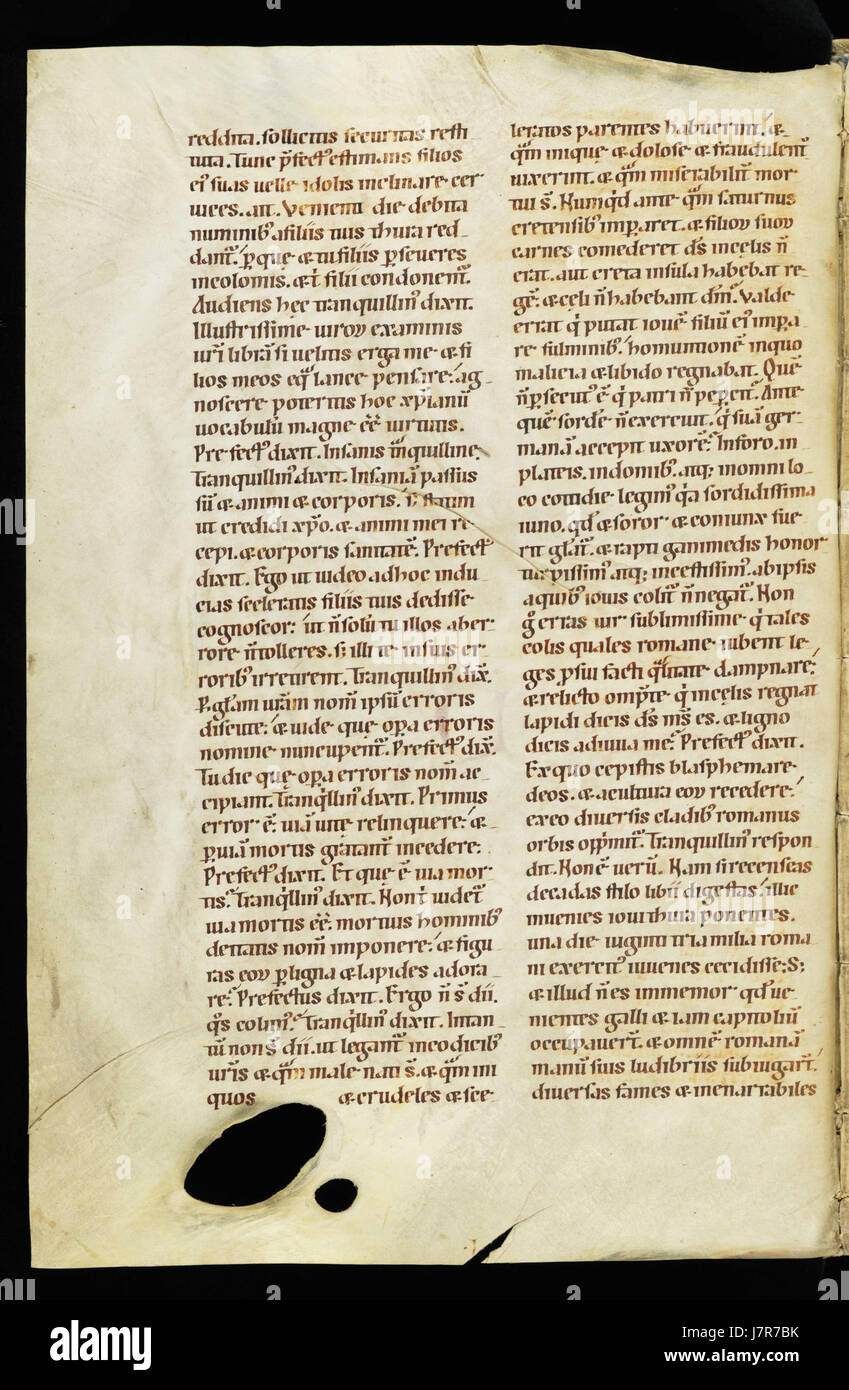 reddita. sollicitis securitas resti
tuta. Tunc p̄fect᷒ estimans filios
ei᷒ suas uelle idolis inclinare cer
uices. ait. Venienti die debita
numinib᷒ a filiis tuis thura red
dant᷑. p̱ que & tu filiis p̱seueres
incolomis. & t᷑ filii condonent᷑.
Audiens hec tranquillin᷒ dixit.
Illustrissime uiroꝝ examinis
ur̄i librā si uelitis erga me & fi
lios meos eq̄ lance pensare. ag
noscere poteritis hoc xp̄ianū
uocabulū magne ēē uirtutis.
Prefect᷒ dixit. Insanis t̄nquilline.
Tranquillin᷒ dixit. Insaniā passus
sū & animi & corporis. s; statim
ut credidi xp̄o. & animi mei re
cepi. & corporis sanitatē. Prefect᷒
dixit. Ego ut uideo ad hoc indu
cias sceleratis filiis tuis dedisse
cognoscor. ut n̄ solū tu illos ab er
rore n̄ tolleres. s; illi te in suis er
rorib᷒ irretirent. Tranquillin᷒ dix̄.
P̱ gl̄am urām nom̄ ipsū erroris
discute. & uide que op̱a erroris
nomine nuncupent᷑. Prefect᷒ dix̄.
Tu dic que op̱a erroris nom̄ ac
cipiant. Tranq̄llin᷒ dixit. Primus
error ē. uiā uite relinquere. &
p̱ uiā mortis gratant᷑ incedere.
Prefect᷒ dixit. Et que ē uia mor
tis. Tranq̄llin᷒ dixit. Non t᷑ uidet᷑
uia mortis ēē. mortuis hominib᷒
deitatis nom̄ imponere. & figu
ras eoꝝ p̱ ligna & lapides adora
re. Prefectus dixit. Ergo n̄ s̄ dii.
q̄s colim᷒. Tranq̄llin᷒ dixit. In tan
tū non s̄ dii. ut legant᷑ in codicib᷒
ur̄is & q̄m male nati s̄. & q̄m ini
quos & crudeles & sce
leratos parentes habuerint. &
q̄m inique & dolose & fraudulent᷑
uixerint. & q̄m miserabilit᷑ mor
tui s̄. Numq̄d ante q̄m saturnus
cretensib᷒ imparet. & filioꝝ suoꝝ
carnes comederet d̄s in celis n̄
erat. aut creta insula habebat re
gē. & celi n̄ habebant dn̄m. Valde
errat q̄ putat iouē filiū ei᷒ imp̱a
re fulminib᷒. homuntionē in quo
malicia & libido regnabat. Quē
n̄ p̱secut᷒ ē q̄ patri n̄ pep̱cit. Aut
quē sordē n̄ exercuit. q̄ suā ger
manā accepit uxorē. In foro. in
plateis. in domib᷒. atq; in omni lo
co cottidie legim᷒ q̄a sordidissima
iuno. q̄d & soror & coniunx fue
rit gl̄at᷑. & rapti gannimedis honor
turpissim᷒ atq; incestissim᷒. ab ipsis
a quib᷒ iouis colit᷑ n̄ negat᷑. Non
g̊ erras uir sublimissime q̄ tales
colis quales romane iubent le
ges p̱ sui facti q̄litate dampnare.
& relicto omp̄te q̄ in celis regnat
lapidi dicis d̄s m̄s es. & ligno
dicis adiuua me. Prefect᷒ dixit.
Ex quo cepistis blasphemare
deos. & a cultura eoꝝ recedere.
ex eo diuersis cladib᷒ romanus
orbis opp̄mit᷑. Tranquillin᷒ respon
dit. Non ē uerū. Nam si recenseas
decadas stilo libii digestas. illic
inuenies ioui thura ponentes.
una die uiginti tria milia roma
ni exercit᷒ iuuenes cecidisse. S;
& illud n̄ es immemor q̄d ue
nientes galli & iam capitoliū
occupauer̄t. & omnē romanā
manū suis ludibriis subiugar̄t.
diuersas fames & inenarrabiles
a
alamy
Image ID: J7R7BK
www.alamy.com